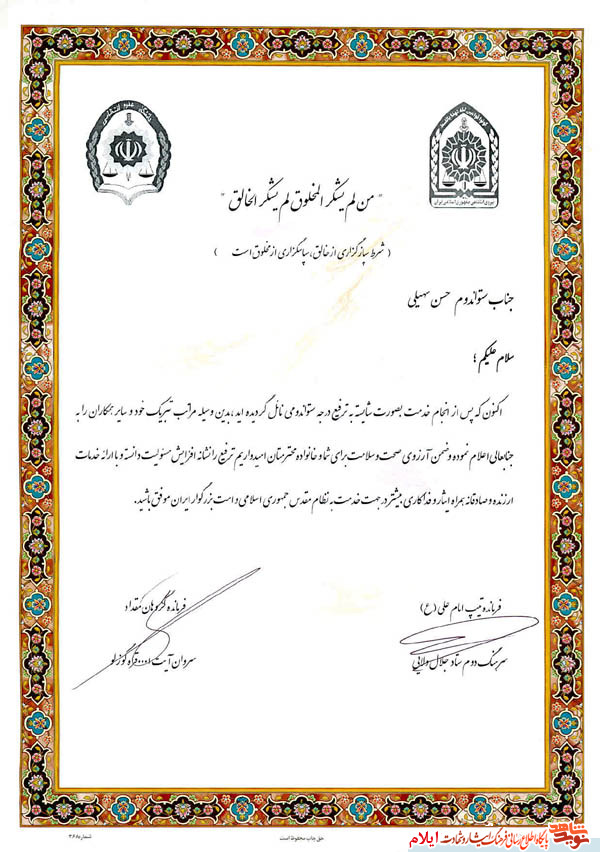 دانشگاه علوم انتظامی
نیروی انتظامی جمهوری اسلامی ایران
" من لم یشکر المخلوق لم یشکر الخالق "
( شرط سپاسگزاری از خالق، سپاسگزاری از مخلوق است )
جناب ستواندوم حسن سهیلی
سلام علیکم ؛
اکنون که پس از انجام خدمت بصورت شایسته به ترفیع درجه ستواندومی نائل گردیده اید، بدین وسیله مراتب تبریک خود و سایر همکاران را به
جنابعالی اعلام نموده و ضمن آرزوی صحت و سلامت برای شما و خانواده محترمتان امیدواریم ترفیع را نشانه افزایش مسئولیت دانسته و با ارائه خدمات
ارزنده و صادقانه بهمراه ایثار و فداکاری بیشتر در جهت خدمت به نظام مقدس جمهوری اسلامی و امت بزرگوار ایران موفق باشید.
فرمانده تیپ امام علی (ع)
سرهنگ دوم ستاد جلال مولایی
فرمانده گروهان مقداد
سروان آیت ا... قره گوزلو
حق چاپ محفوظ است
شماره ۳۶۵
نوید شاهد
پایگاه اطلاع رسانی فرهنگ ایثار و شهادت ایلام